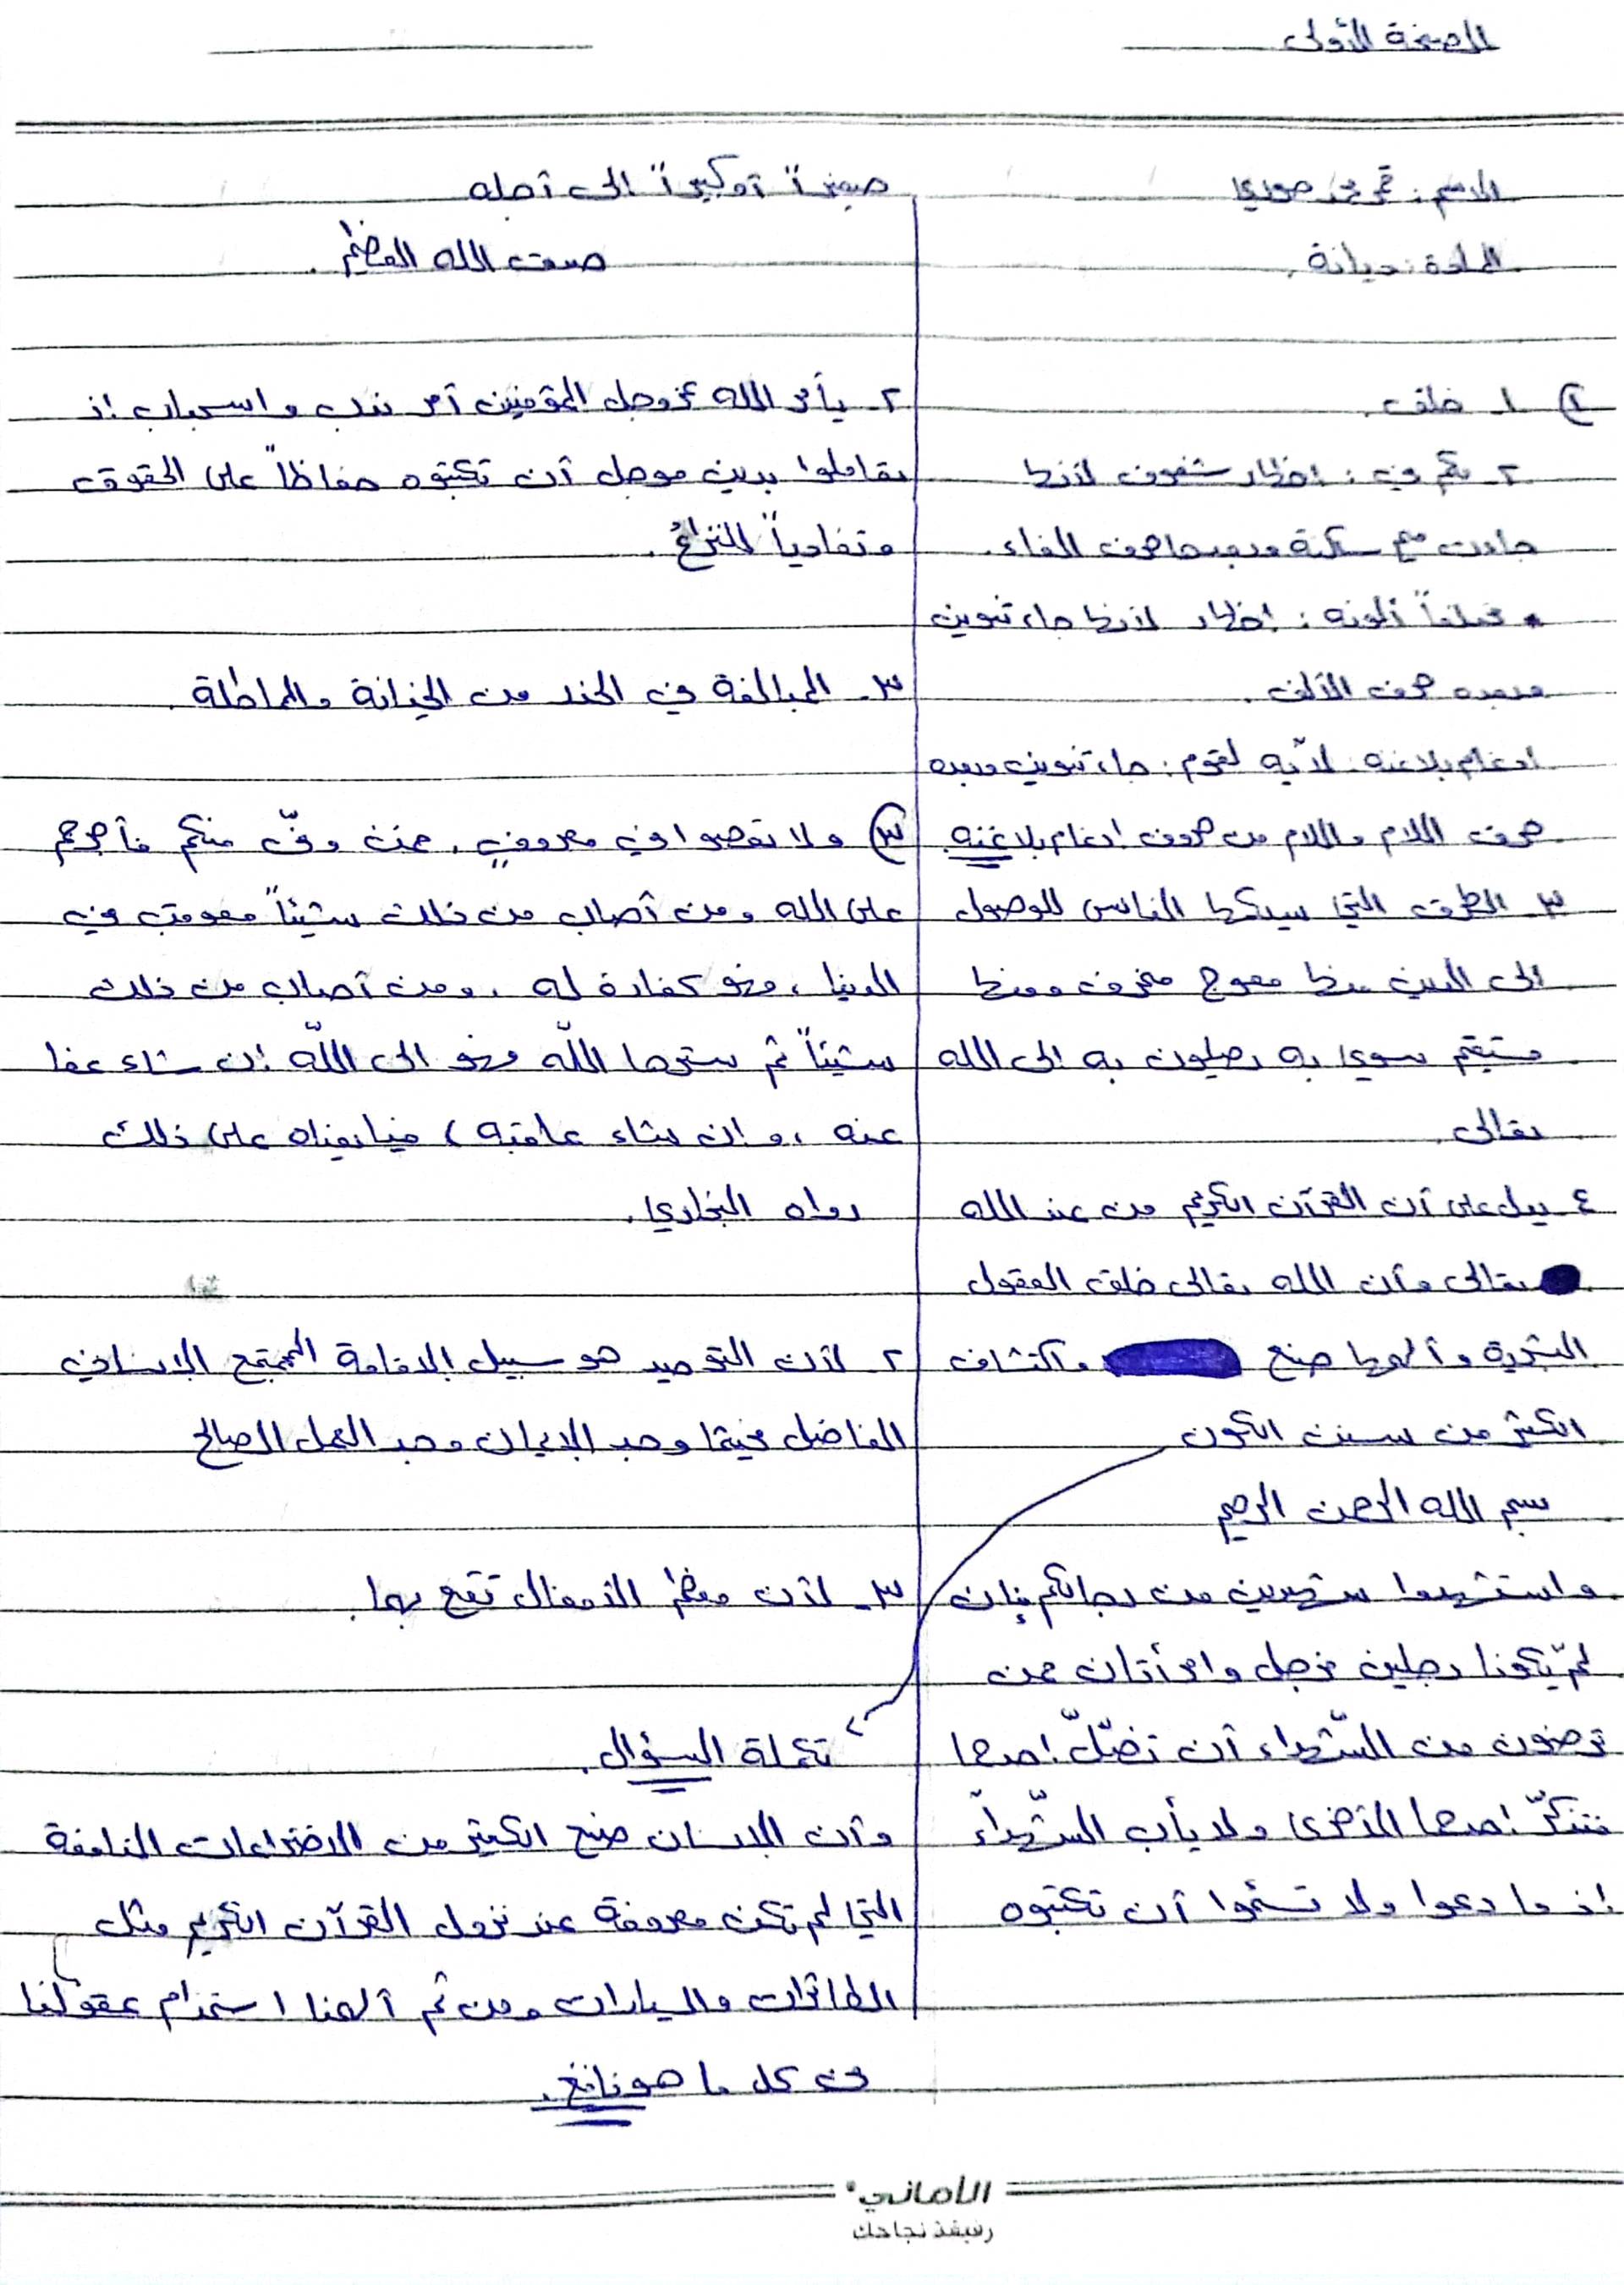 الصفحة الأولى
الاسم: صبري
المادة: ديانة.
١ـ خلق.
٢ـ لكم في: إظهار شفوي لأنها
جاءت مع ساكنة وبعدها حرف الفاء.
ألوانه: إظهار لأنها جاء تنوين
وبعده حرف الألف.
ادغام بلاغنة: لآية لقوم: جاء تنوين وبعده
حرف اللام واللام من حروف إدغام بلا غنة.
٣ـ الطرق التي سيسلكها الناس للوصول
الى الدين منها معوج منحرف ومنها
مستقيم سوي به يصلون به الى الله
تعالى.
٤ـ يدل على أن القرآن الكريم من عند الله
تعالى وأن الله تعالى خلق العقول
البشرية وألهمها صنع واكتشاف
الكثير من سنن الكون
بسم الله الرحمن الرحيم
واستشهدوا شهيدين من رجالكم فإن
لم يكونا رجلين فرجل وامرأتان ممن
ترضون من الشّهداء أن تضلّ إحدهما
فتذكّر إحدهما الأخرى ولا يأب الشّهداء
إذ ما دعوا ولا تسئموا أن تكتبوه
صغيراً أو كبيراً الى أجله
صدق الله العظيم.
٢ـ يأمر الله عزوجل المؤمنين أمر ندب واستحباب إذ
تعاملوا بدين موجل أن تكتبوه حفاظاً على الحقوق
وتفادياً للنزاع.
٣ـ المبالغة في الحذر من الخيانة والماطلة.
٣ ولا تعصوا في معروفٍ، فمن وفّى منكم فأجرهم
على الله ومن أصاب من ذلك شيئاً فعوقب في
الدنيا، فهو كفارة له، ومن أصاب من ذلك
شيئاً ثم سترها اللّه فهو الى اللّه إن شاء عفا
عنه، وإن شاء عاقبه) فبايعناه على ذلك
رواه البخاري.
٢ـ لأن التوحيد هو سبيل الإقامة المجتمع الإنساني
الفاضل فحيثما وجد الإيمان وجد العمل الصالح
٣ـ لأن معظم الأفعال تقع بها.
تكملة السؤال.
وأن الإنسان صنع الكثير من الاختراعات النافعة
التي لم تكن معروفة عند نزول القرآن الكريم مثل
الطائرات والسيارات ومن ثم ألهمنا استخدام عقولنا
في كل ما هو نافع.
الأماني
رفيقة نجاحك